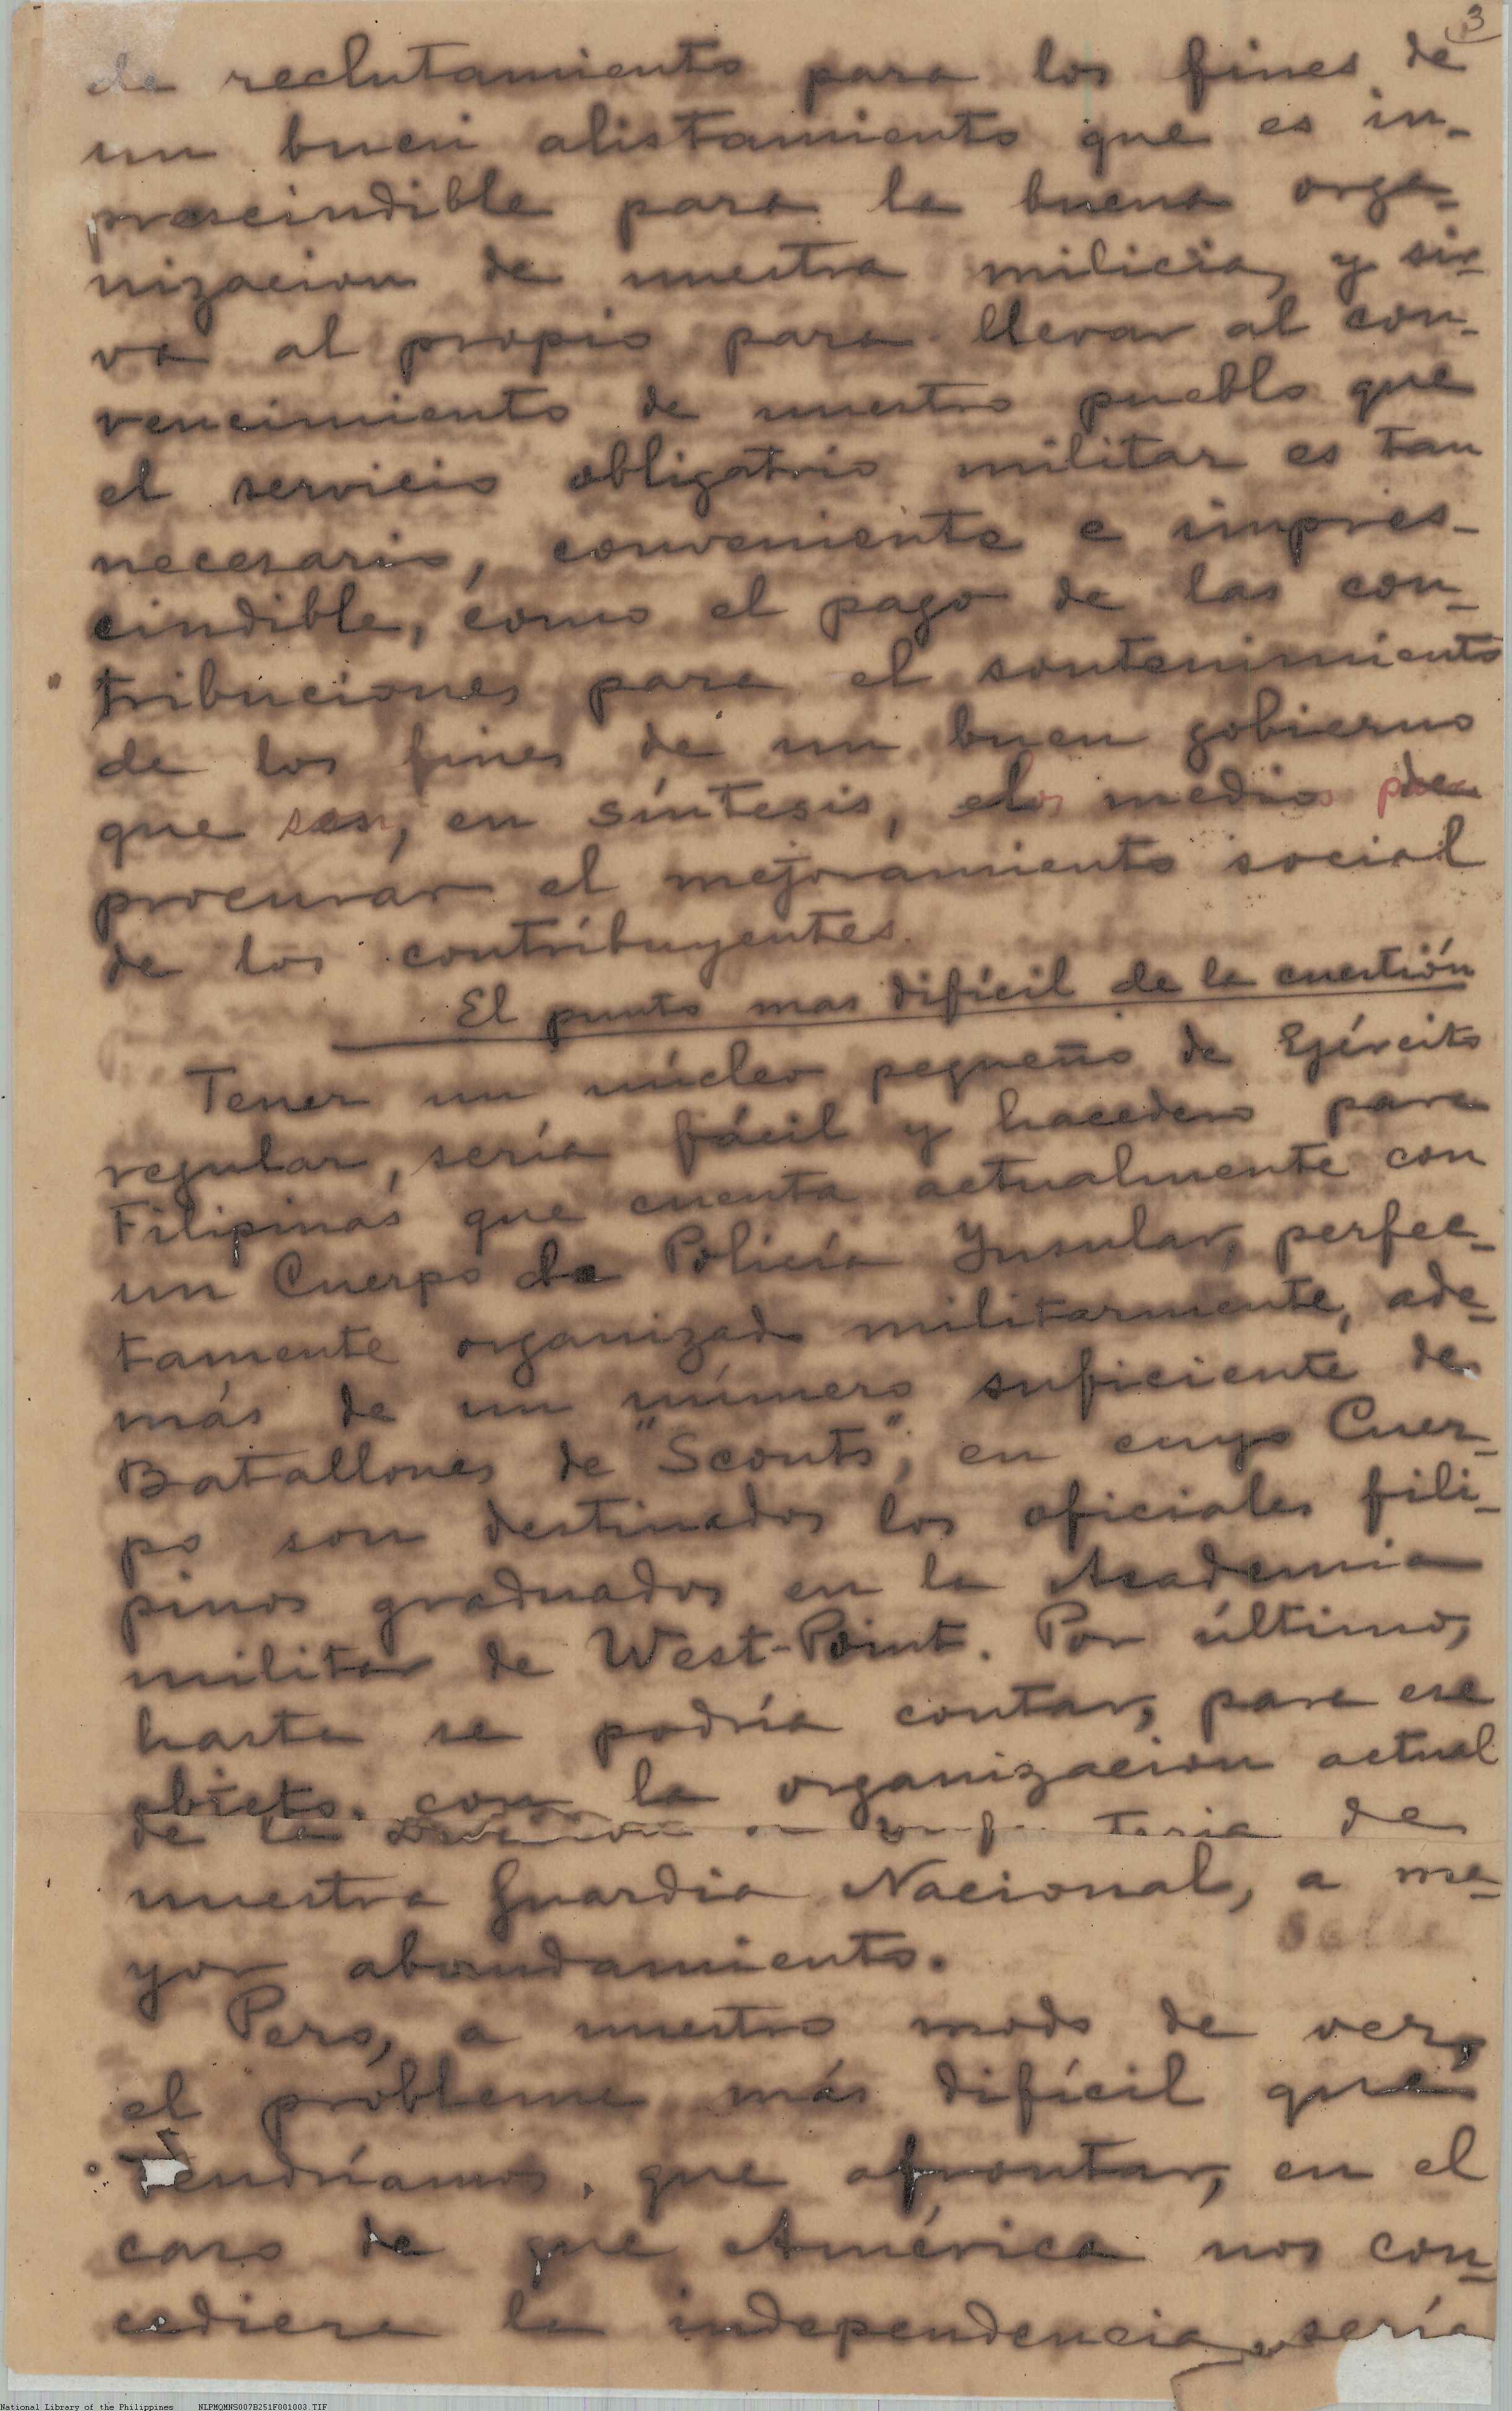 3
de reclutamiento para los fines de
un buen alistamiento que es in-
prescindible para la buena orga-
nizacion de nuestra milicia, y sir-
va al propio para llevar al con-
vencimiento de nuestro pueblo que
el servicio obligatorio militar es tan
necesario, conveniente e impres-
cindible, como el pago de las con-
tribuciones para el sontenimiento
de los fines de un buen gobierno
que son, en síntesis, los medios para
procurar el mejoramiento social
de los contribuyentes.
El punto mas difícil de la cuestión
Tener un núcleo pequeño de Ejército
regular, sería fácil y hacedero para
Filipinas que cuenta actualmente con
un Cuerpo de Policía Insular, perfec-
tamente organizado militarmente, ade-
más de un número suficiente de
Batallones de "Scouts", en cuyo Cuer-
po son destinados los oficiales fili-
pinos graduados en la Academia
militar de West-Point. Por último,
hasta se podría contar, para ese
objeto, con la organizacion actual
de la de
nuestra Guardia Nacional, a ma-
yor abundamiento.
Pero, a nuestro modo de ver,
el probleme más difícil que
tendríamos, que afrontar, en el
caso de que América nos con-
cediera la independencia, sería
National Library of the Philippines NLPMQMNS007B251F001003.TIF